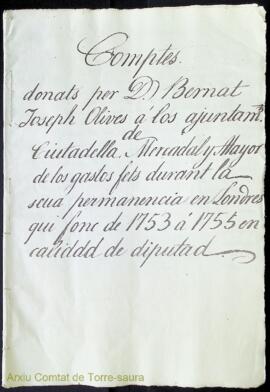 Comptes.
donats per D.n Bernat
Joseph Olives á los ajuntam.ts
de
Ciutadella. Mercadal y Mayor
de los gastos fets durant la
seua permanencia en Londres
qui fonc de 1753 á 1755 en
caliddd de diputad.
Arxiu Comtat de Torre-saura